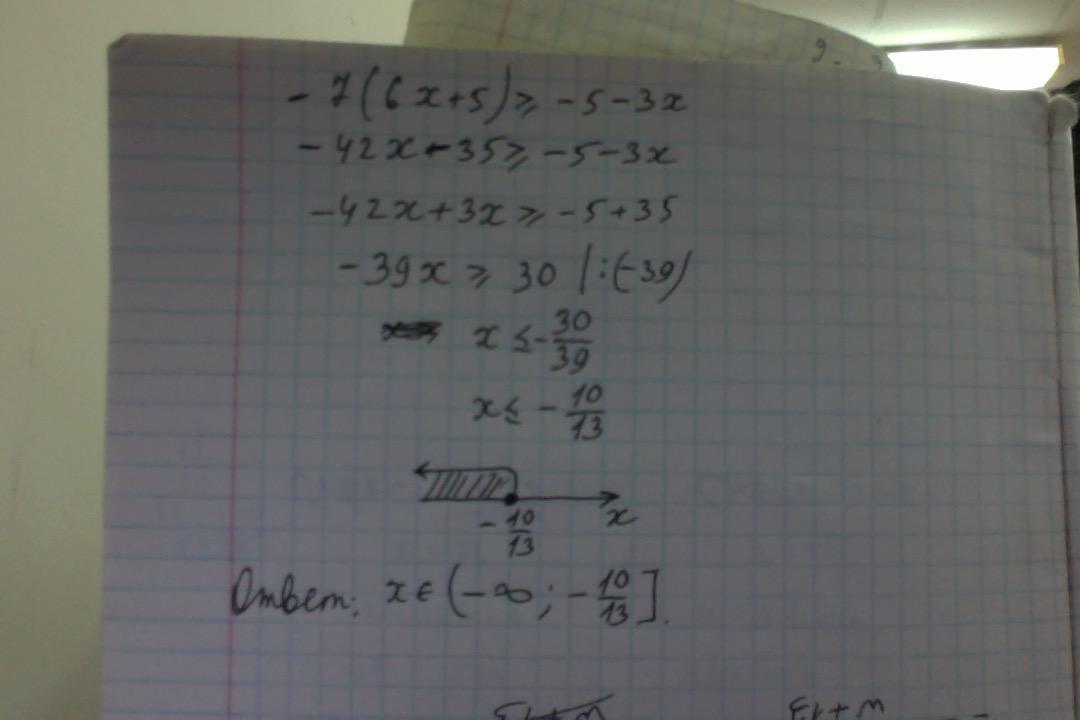 - 7(6x+5) ⩾ -5-3x
-42x-35 ⩾ -5-3x
-42x+3x ⩾ -5+35
-39x ⩾ 30 |:(-39)
x ≤ -30/39
x ≤ -10/13
-10/13 x
Ответ: x∈(-∞; -10/13].